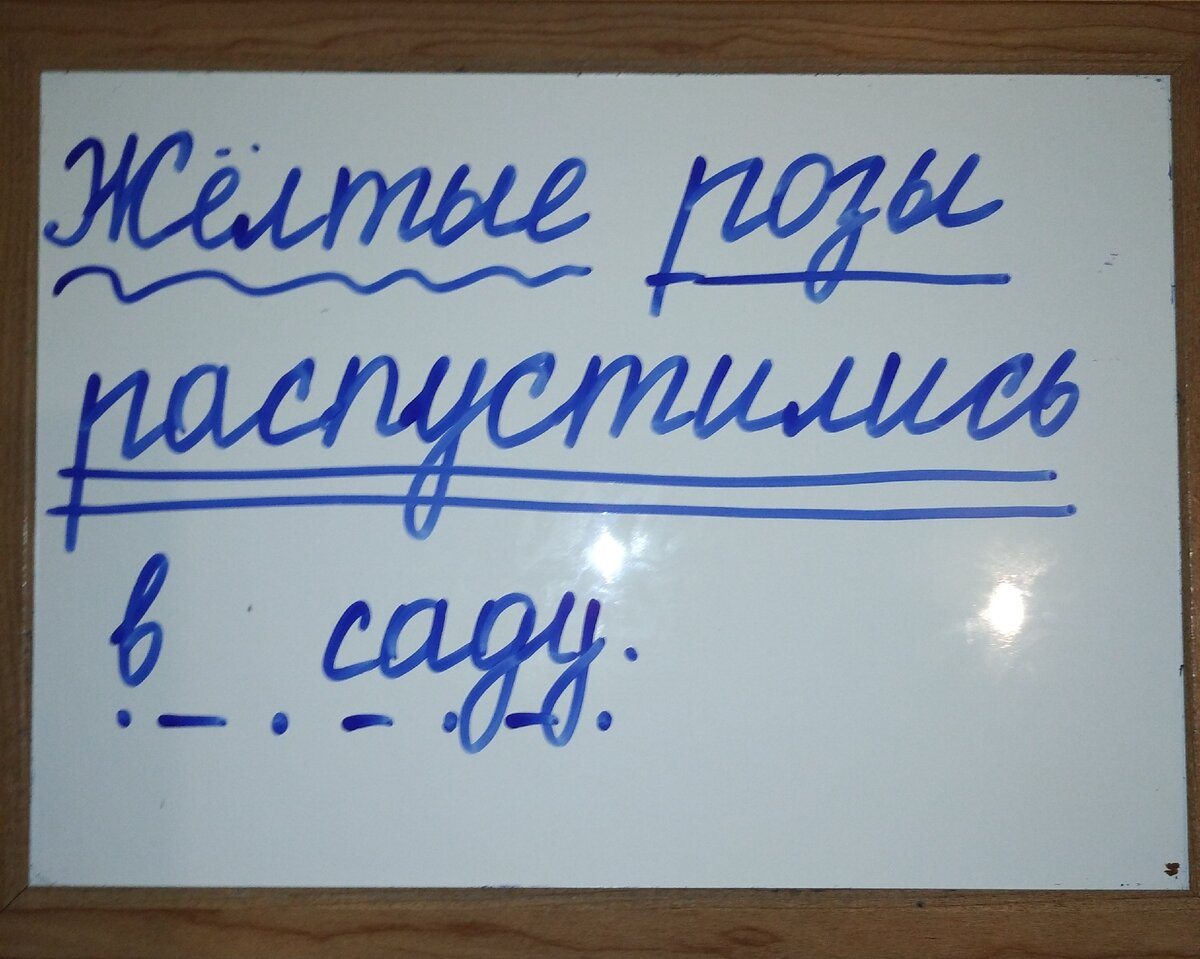 Жёлтые розы
распустились
в саду.